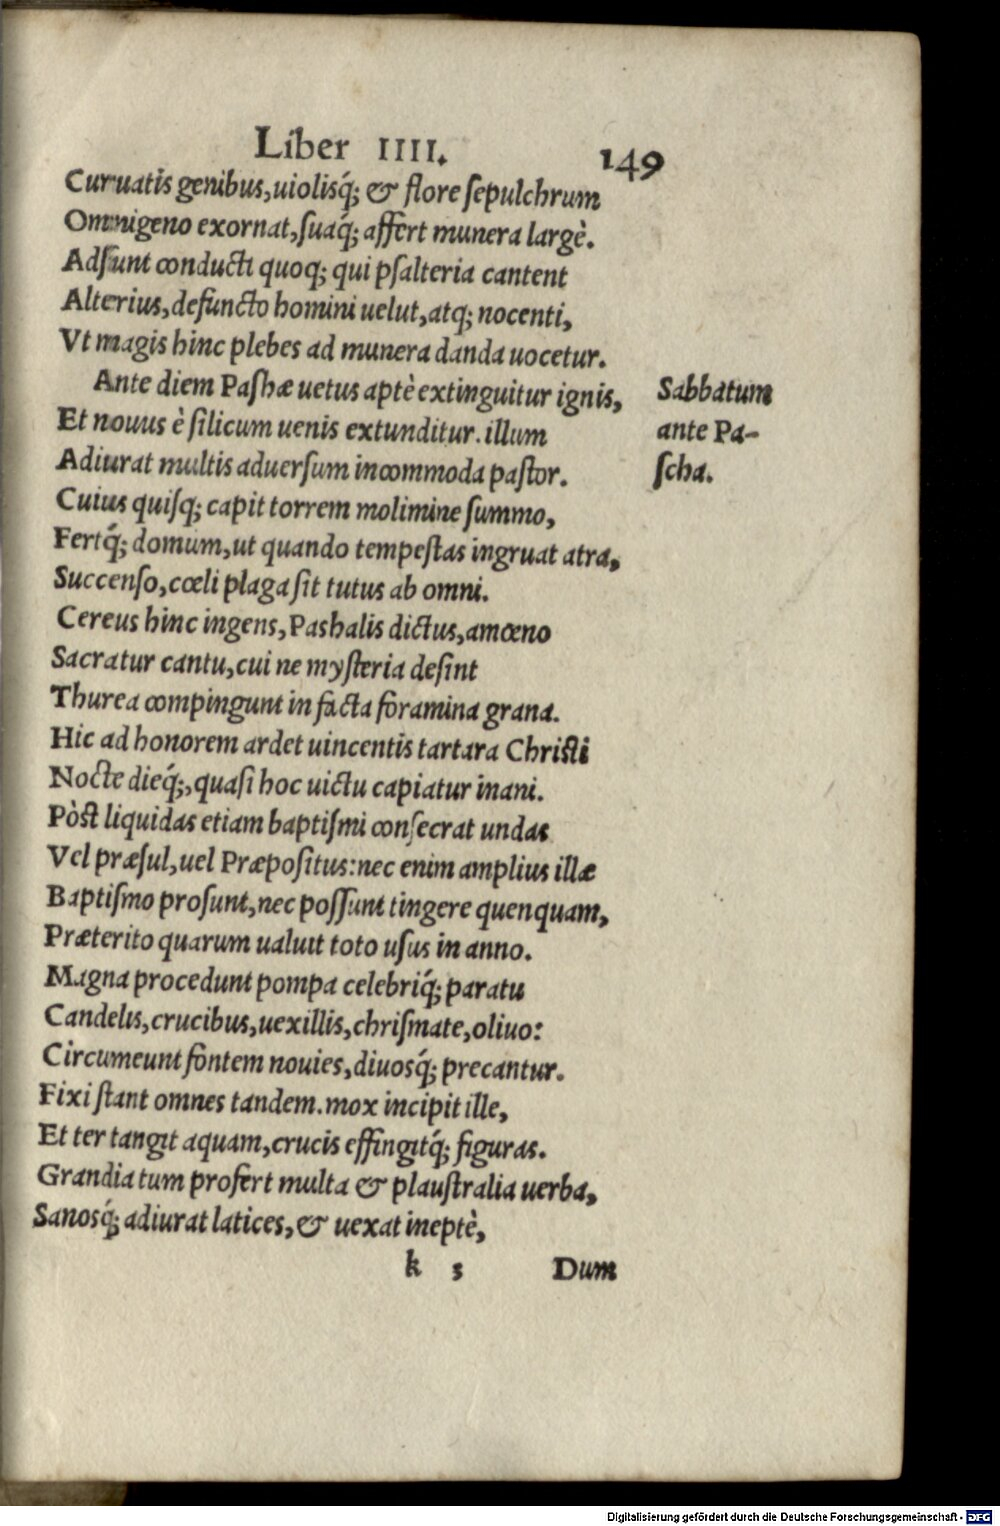 Liber IIII. 149
Curuatis genibus, uiolisq́; & flore ſepulchrum
Omnigeno exornat, ſuaq́; affert munera largè.
Adſunt conducti quoq; qui pſalteria cantent
Alterius, defuncto homini uelut, atq; nocenti,
Vt magis hinc plebes ad munera danda uocetur.
Ante diem Paſhæ uetus aptè extinguitur ignis,
Et nouus è ſilicum uenis extunditur. illum
Adiurat multis aduerſum incommoda paſtor.
Cuius quiſq; capit torrem molimine ſummo,
Fertq́; domum, ut quando tempeſtas ingruat atra,
Succenſo, cœli plaga ſit tutus ab omni.
Cereus hinc ingens, Pashalis dictus, amœno
Sacratur cantu, cui ne myſteria deſint
Thurea compingunt in facta foramina grana.
Hic ad honorem ardet uincentis tartara Chriſti
Nocte dieq́;, quaſi hoc uictu capiatur inani.
Pòſt liquidas etiam baptiſmi conſecrat undas
Vel præſul, uel Præpoſitus: nec enim amplius illæ
Baptiſmo proſunt, nec poſſunt tingere quenquam,
Præterito quarum ualuit toto uſus in anno.
Magna procedunt pompa celebriq́; paratu
Candelis, crucibus, uexillis, chriſmate, oliuo:
Circumeunt fontem nouies, diuosq́; precantur.
Fixi ſtant omnes tandem. mox incipit ille,
Et ter tangit aquam, crucis effingitq́; figuras.
Grandia tum profert multa & plauſtralia uerba,
Sanosq́; adiurat latices, & uexat ineptè,
k 5 Dum
Sabbatum
ante Pa-
ſcha.
Digitalisierung gefördert durch die Deutsche Forschungsgemeinschaft - DFG